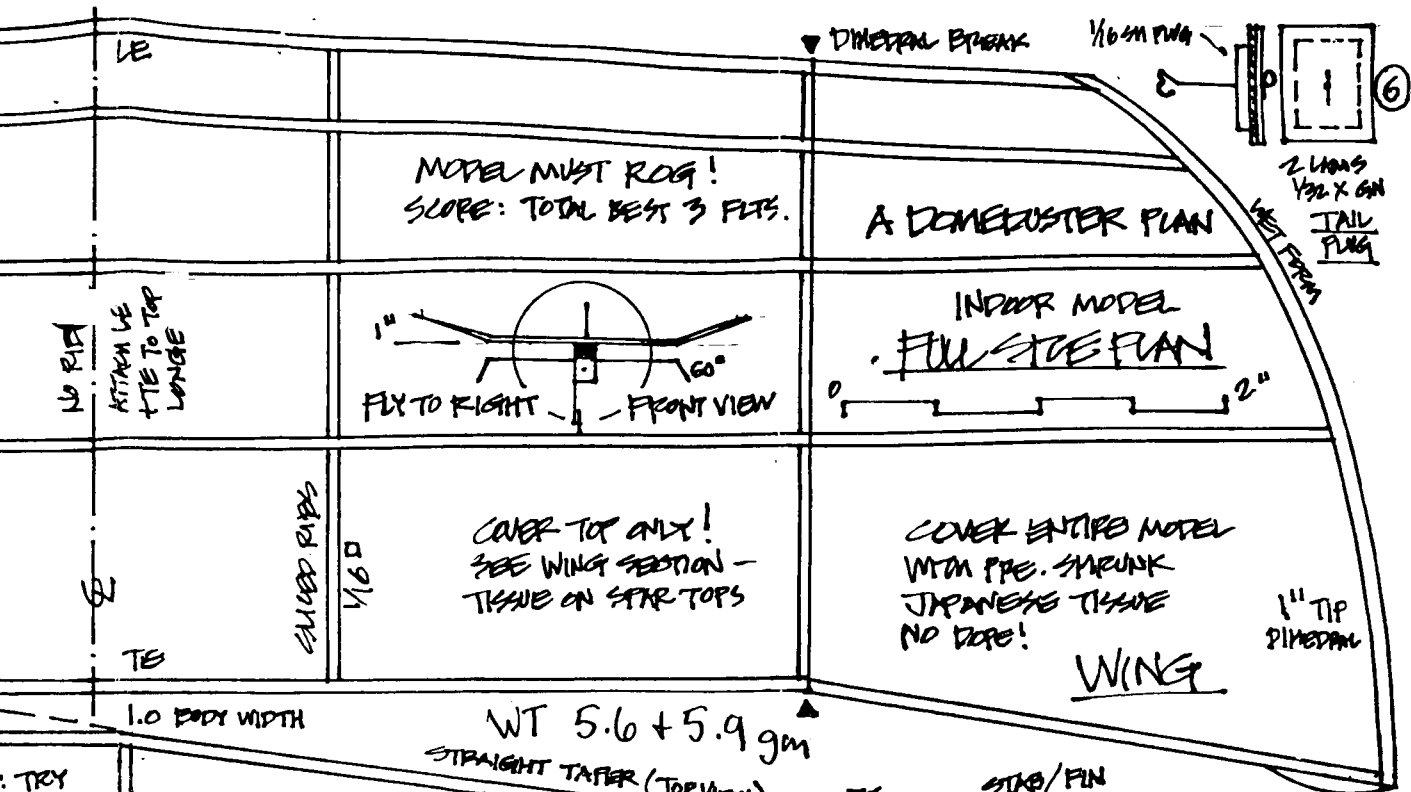 LE
▼ DIHEDRAL BREAK
1/16 SH PLUG
6
2 LAMS
1/32 X GN
TAIL
PLUG
MODEL MUST ROG!
SCORE: TOTAL BEST 3 FLTS.
A DOMEBUSTER PLAN
SET FORM
NO RIB
ATTACH LE
+ TE TO TOP
LONGE
1"
60°
FLY TO RIGHT
FRONT VIEW
INDOOR MODEL
FULL SIZE PLAN
0 2"
SLICED RIBS
1/16 □
COVER TOP ONLY!
SEE WING SECTION -
TISSUE ON SPAR TOPS
COVER ENTIRE MODEL
WITH PRE. SHRUNK
JAPANESE TISSUE
NO DOPE!
1" TIP
DIHEDRAL
WING
CL
TE
1.0 BODY WIDTH
WT 5.6 + 5.9 gm
STRAIGHT TAPER (TOP VIEW)
STAB/FIN
: TRY